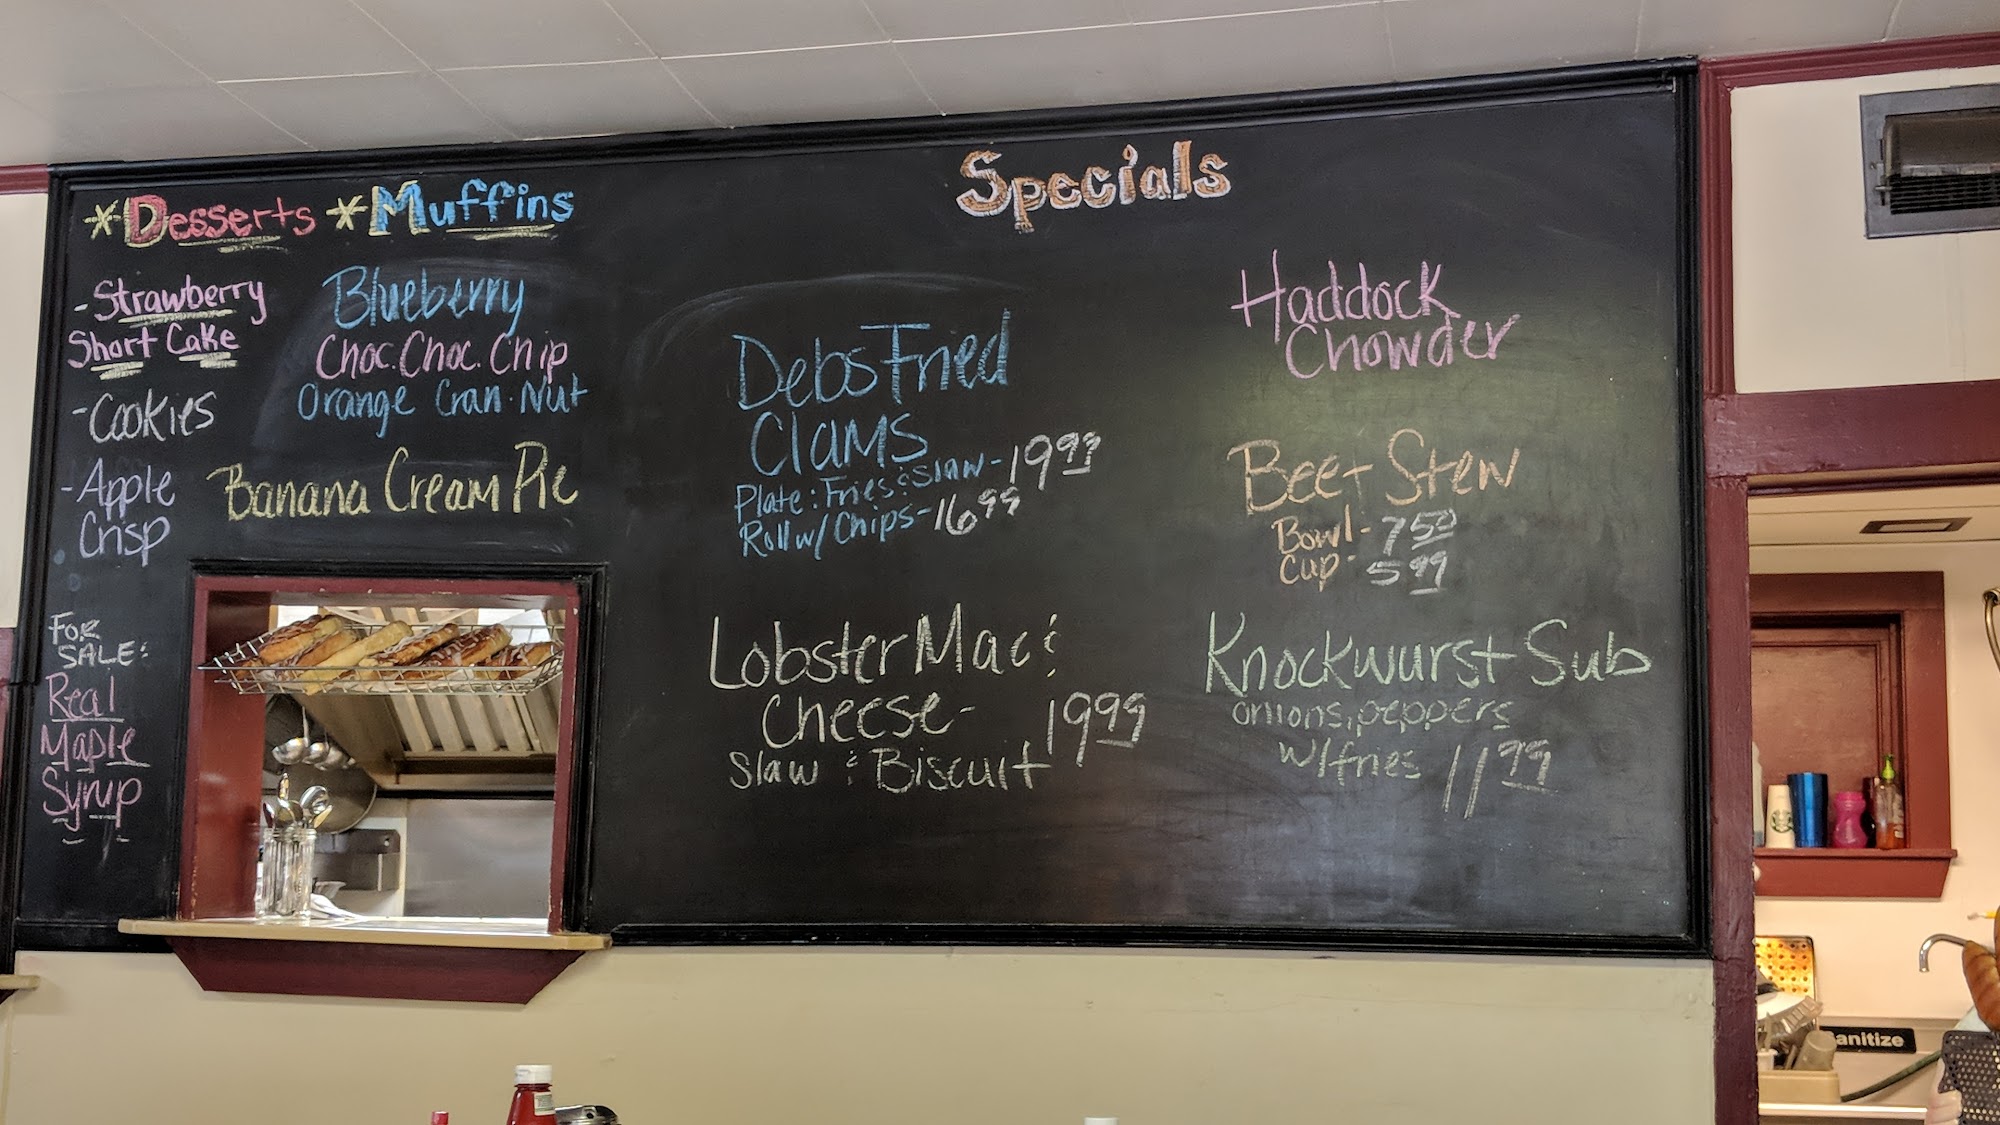 *Desserts
- Strawberry
Short Cake
- Cookies
- Apple
Crisp
*Muffins
Blueberry
Choc. Choc. Chip
Orange Cran. Nut
Banana Cream Pie
FOR
SALE:
Real
Maple
Syrup
Specials
Debs Fried
Clams
Plate: Fries & Slaw - 19.99
Roll w/ Chips - 16.99
Lobster Mac &
Cheese -
Slaw & Biscuit 19.99
Haddock
Chowder
Beef Stew
Bowl - 7.50
Cup - 5.99
Knockwurst Sub
onions, peppers
w/ fries 11.99
anitize